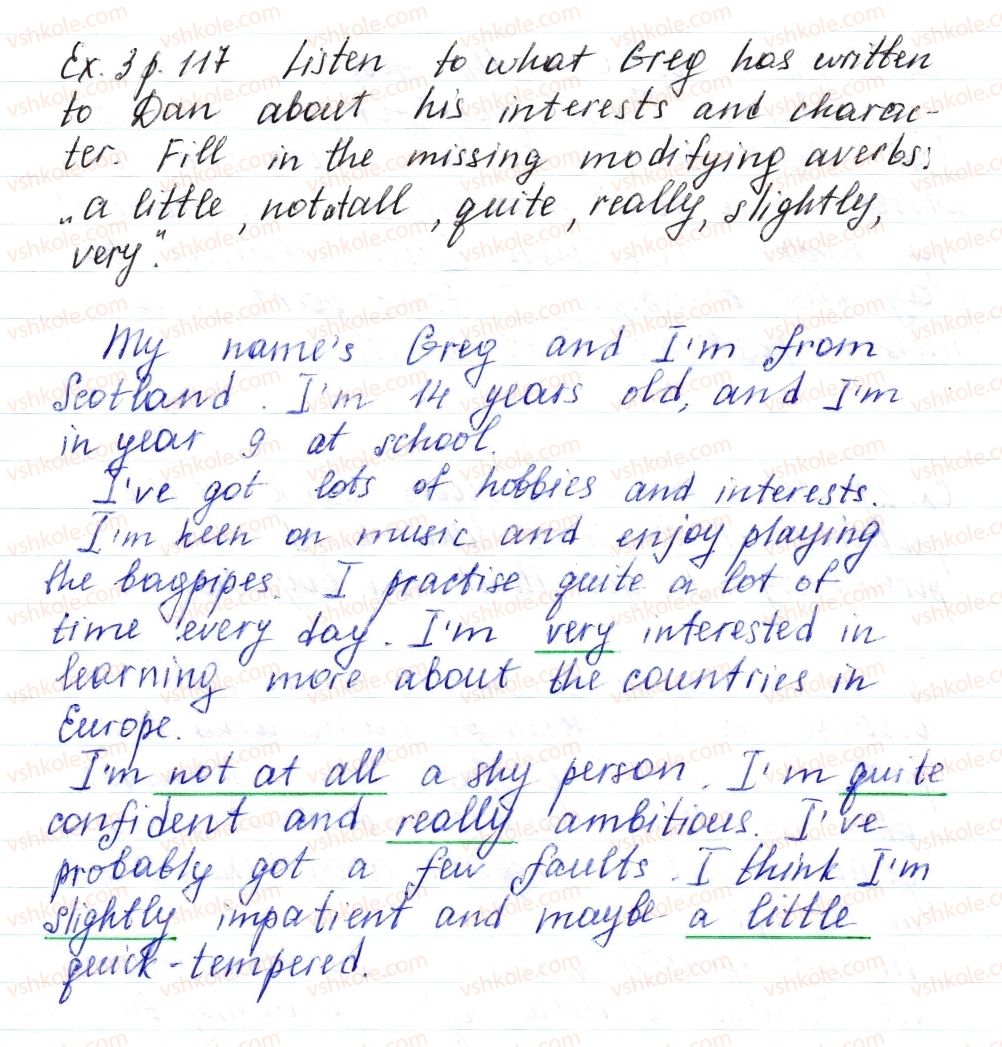 Ex. 3 p. 117 Listen to what Greg has written
to Dan about his interests and charac-
ter. Fill in the missing modifying averbs:
„a little, not at all, quite, really, slightly,
very".
My name's Greg and I'm from
Scotland. I'm 14 years old, and I'm
in year 9 at school.
I've got lots of hobbies and interests.
I'm keen on music and enjoy playing
the bagpipes. I practise quite a lot of
time every day. I'm very interested in
learning more about the countries in
Europe.
I'm not at all a shy person. I'm quite
confident and really ambitious. I've
probably got a few faults. I think I'm
slightly impatient and maybe a little
quick-tempered.